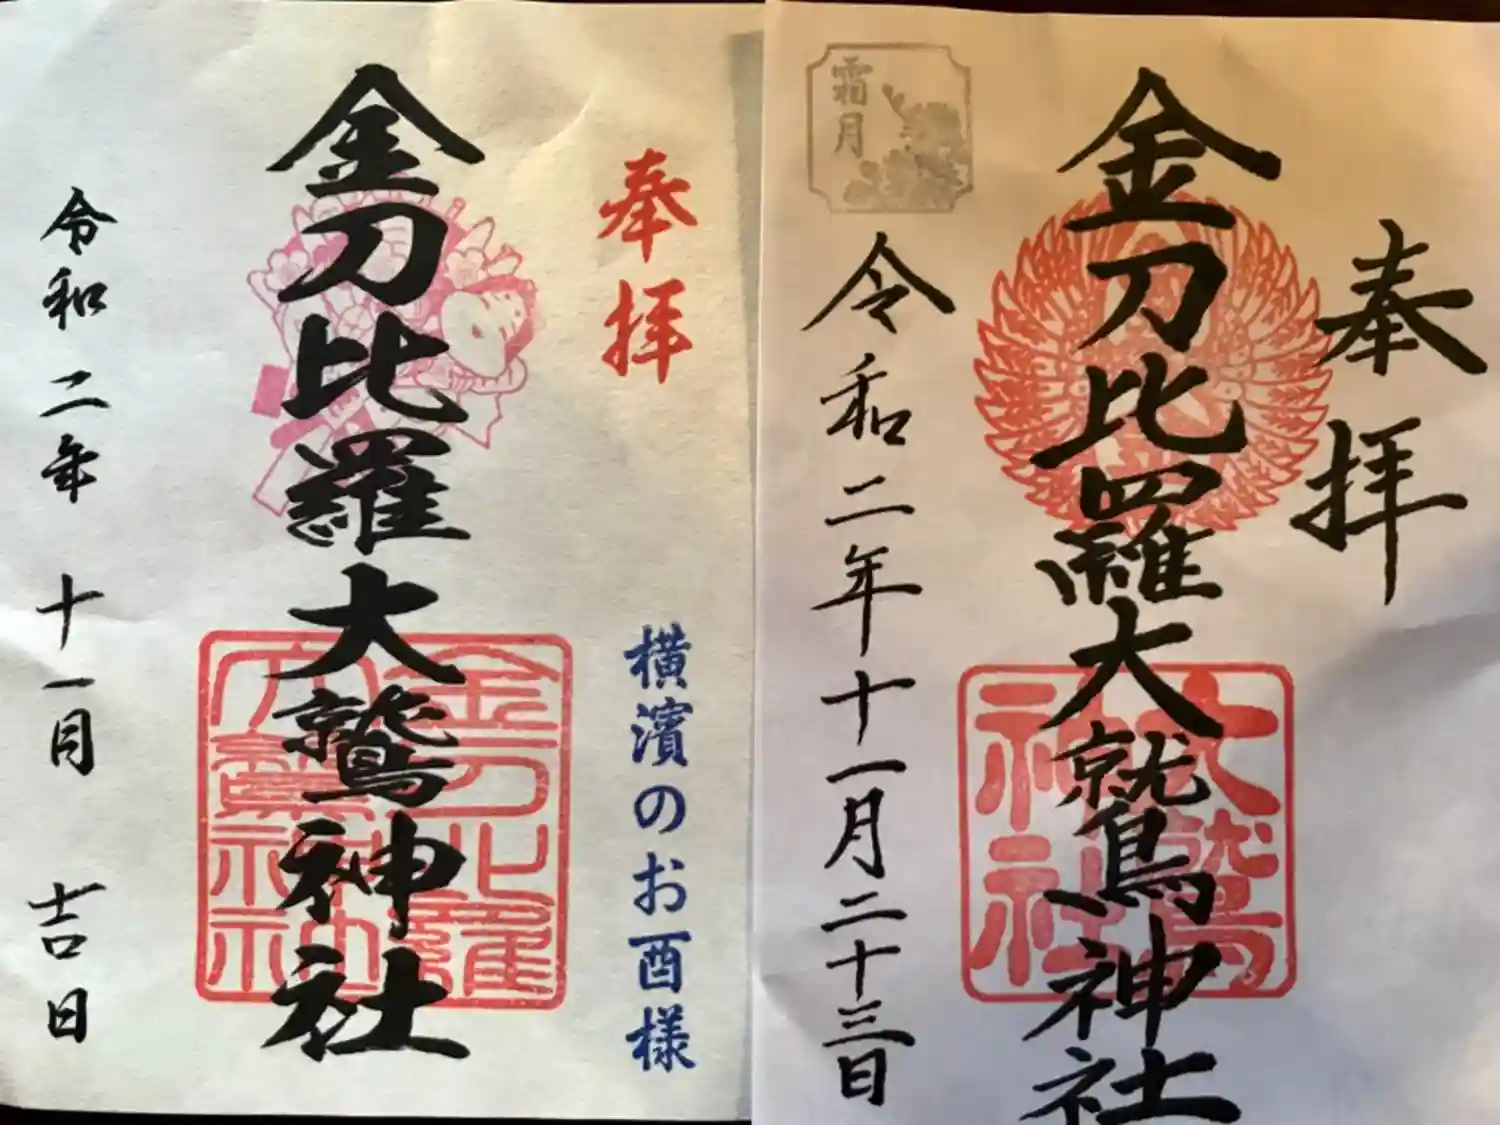 奉拝
横濱のお酉様
金刀比羅大鷲神社
金刀比羅
大鷲神社
令和二年 十一月 吉日
奉拝
金刀比羅大鷲神社
大鷲
神社
霜月
令和二年十一月二十三日